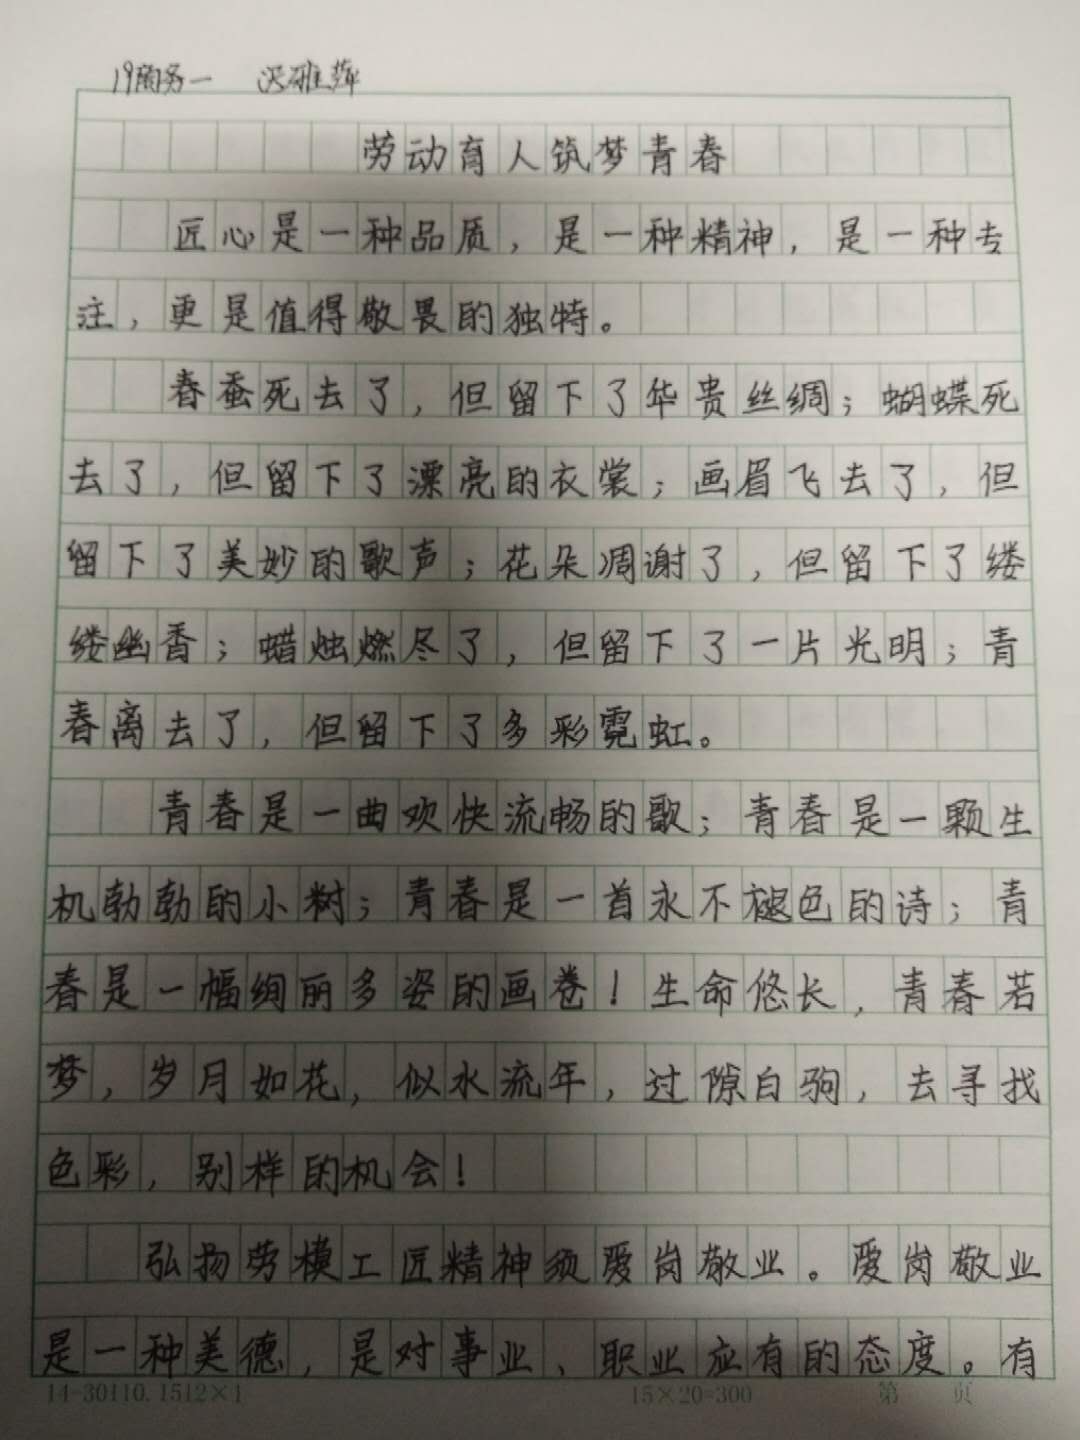 19商务一 沢雅萍
劳动育人筑梦青春
匠心是一种品质，是一种精神，是一种专
注，更是值得敬畏的独特。
春蚕死去了，但留下了华贵丝绸；蝴蝶死
去了，但留下了漂亮的衣裳；画眉飞去了，但
留下了美妙的歌声；花朵凋谢了，但留下了缕
缕幽香；蜡烛燃尽了，但留下了一片光明；青
春离去了，但留下了多彩霓虹。
青春是一曲欢快流畅的歌；青春是一颗生
机勃勃的小树；青春是一首永不褪色的诗；青
春是一幅绚丽多姿的画卷！生命悠长，青春若
梦，岁月如花，似水流年，过隙白驹，去寻找
色彩，别样的机会！
弘扬劳模工匠精神须爱岗敬业。爱岗敬业
是一种美德，是对事业、职业应有的态度。有
14-30110.1512×1 15×20=300 第 页